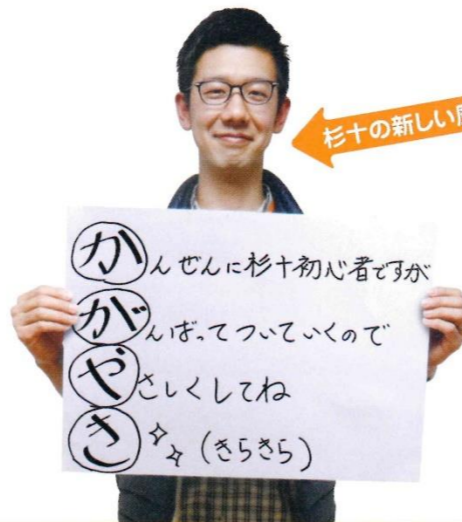 杉十の新しい
かんぜんに杉十初心者ですが
がんばってついていくので
やさしくしてね
き (きらきら)